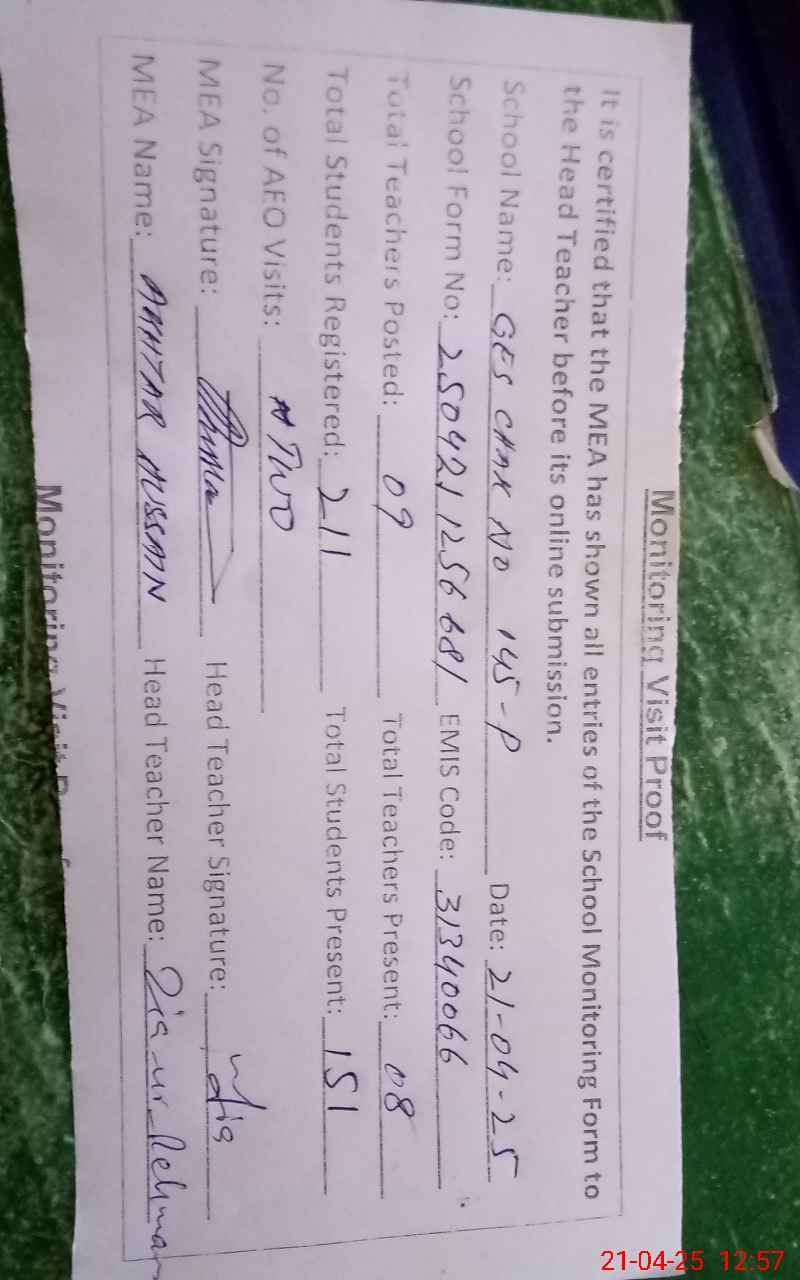 Monitoring Visit Proof
It is certified that the MEA has shown all entries of the School Monitoring Form to
the Head Teacher before its online submission.
School Name: GES CHAK NO 145-P Date: 21-04-25
School Form No: 250421125668 1 EMIS Code: 31340066
Total Teachers Posted: 09 Total Teachers Present: 08
Total Students Registered: 211 Total Students Present: 151
No. of AEO Visits: TWO
MEA Signature: Head Teacher Signature: Zia
MEA Name: HUSSAIN Head Teacher Name: Zia-ur-Rehman
Monitoring Visit Proof
21-04-25 12:57